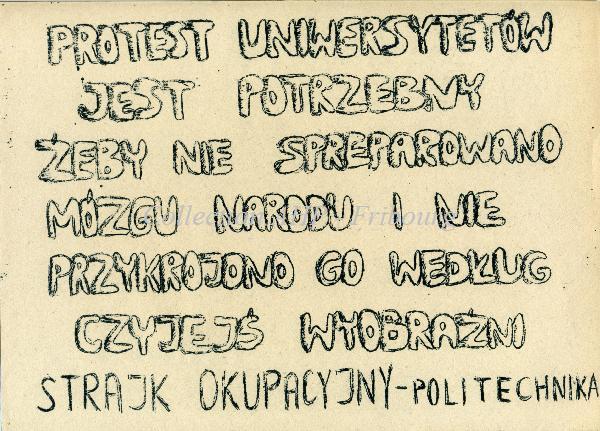 PROTEST UNIWERSYTETÓW
JEST POTRZEBNY
ŻEBY NIE SPREPAROWANO
MÓZGU NARODU I NIE
PRZYKROJONO GO WEDŁUG
CZYJEJŚ WYOBRAŹNI
STRAJK OKUPACYJNY-POLITECHNIKA